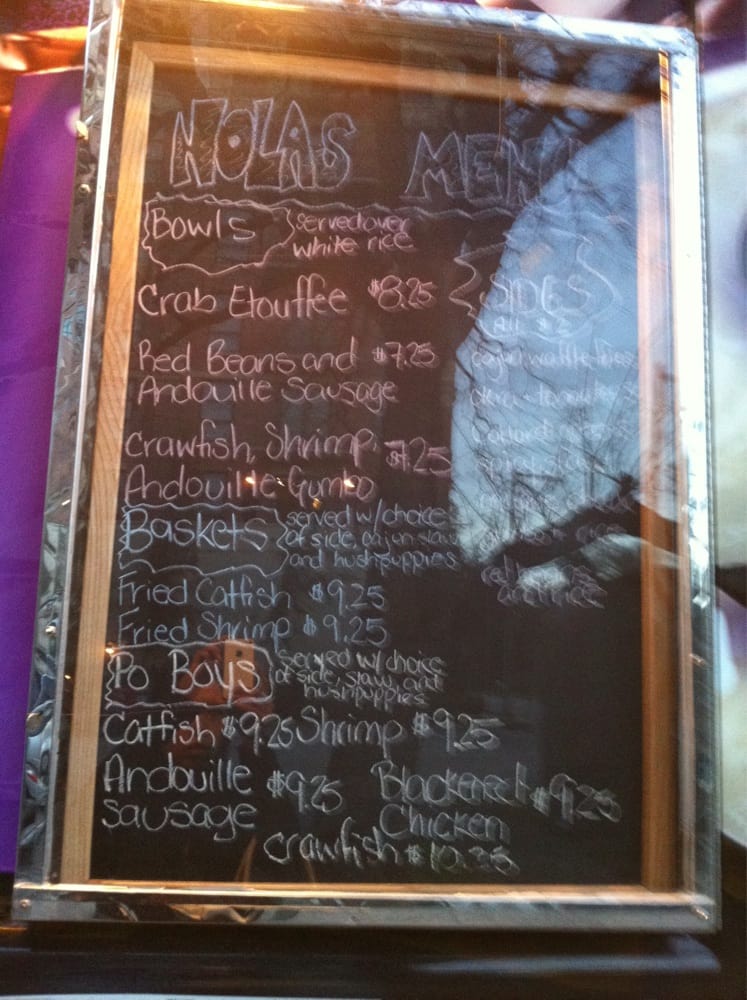 NOLAS MENU
Bowls served over
white rice
Crab Etouffee $8.25
Red Beans and $7.25
Andouille Sausage
Crawfish, Shrimp,
Andouille Gumbo
Baskets served w/choice
of side, cajun slaw
and hushpuppies
Fried Catfish $9.25
Fried Shrimp $9.25
Po Boys Served w/choice
of side, slaw, and
hushpuppies
Catfish $9.25 Shrimp $9.25
Andouille $9.25
Sausage
Blackened $9.25
Chicken
Crawfish
SIDES
All $2
cajun waffle fries
and rice